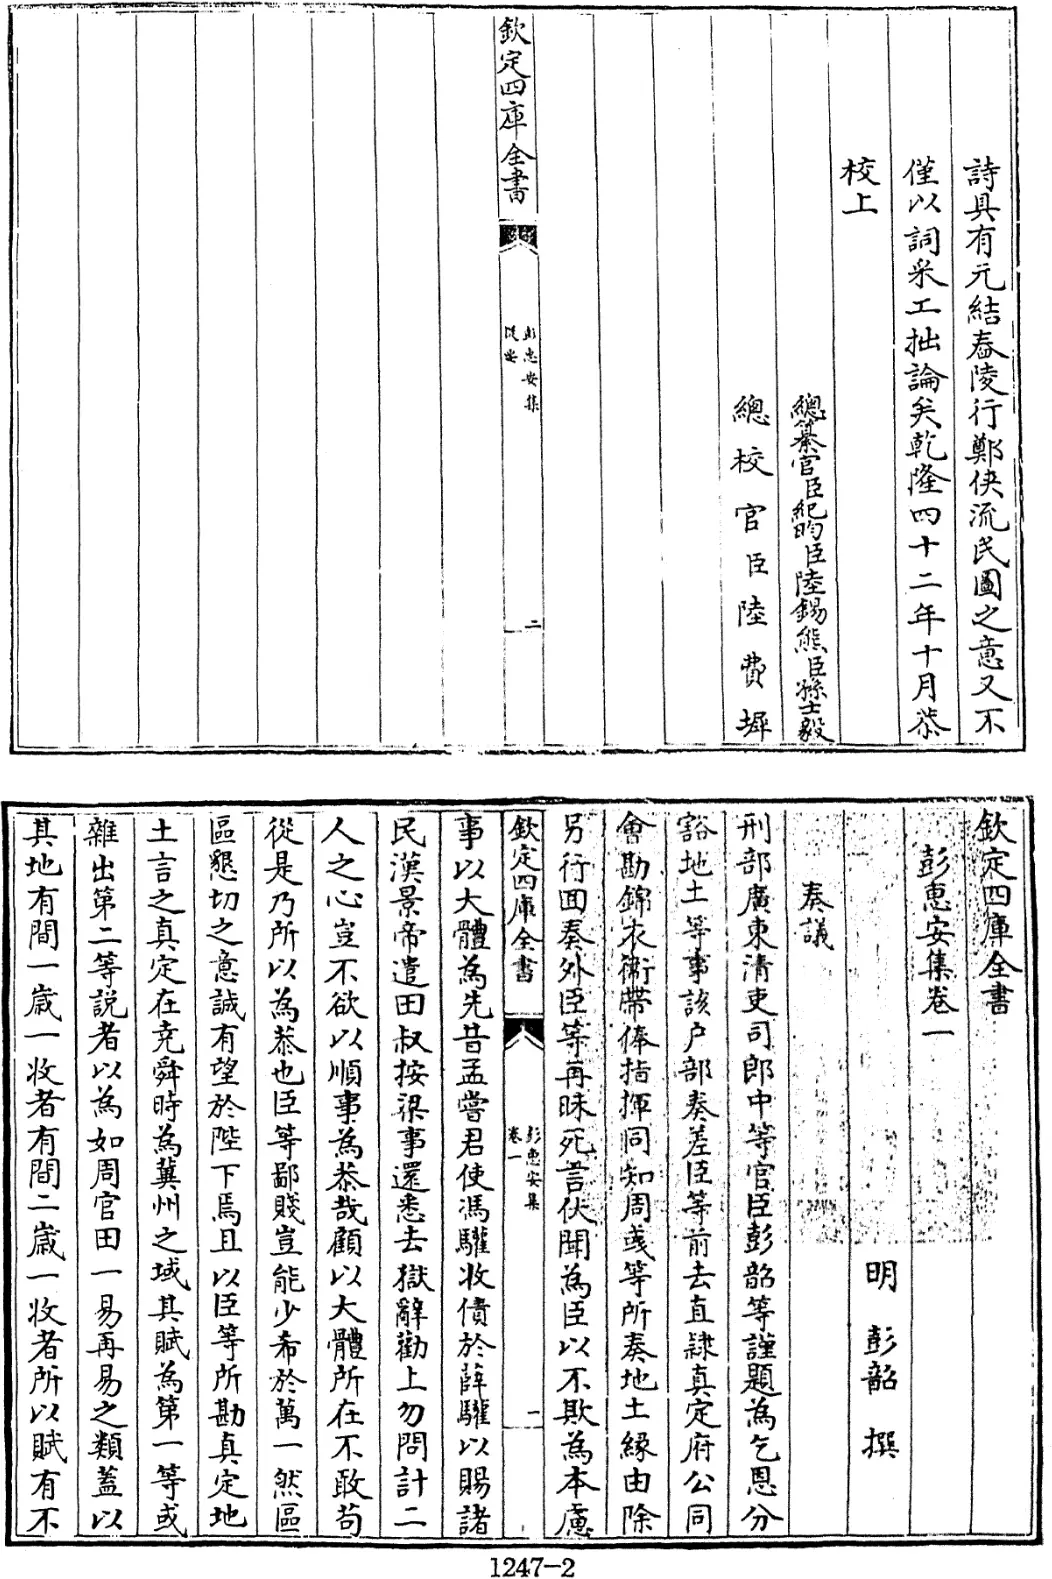 詩具有元結舂陵行鄭俠流民圖之意又不
僅以詞采工拙論矣乾隆四十二年十月恭
校上
總纂官臣紀昀臣陸錫熊臣孫士毅
總校官臣陸費墀
欽定四庫全書
彭惠安集
提要
二
欽定四庫全書
彭惠安集卷一
明彭韶撰
奏議
刑部廣東清吏司郎中等官臣彭韶等謹題為乞恩分
豁地土等事該户部奏差臣等前去直隷真定府公同
會勘錦衣衛帶俸指揮同知周彧等所奏地土緣由除
另行回奏外臣等再昧死言伏聞為臣以不欺為本慮
欽定四庫全書
彭惠安集
卷一
一
事以大體為先昔孟嘗君使馮驩收債於薛驩以賜諸
民漢景帝遣田叔按梁事還悉去獄辭勸上勿問計二
人之心豈不欲以順事為恭哉顧以大體所在不敢苟
從是乃所以為恭也臣等鄙賤豈能少希於萬一然區
區懇切之意誠有望於陛下焉且以臣等所勘真定地
土言之真定在堯舜時為冀州之域其賦為第一等或
雜出第二等説者以為如周官田一易再易之類蓋以
其地有間一歲一收者有間二歲一收者所以賦有不
1247-2